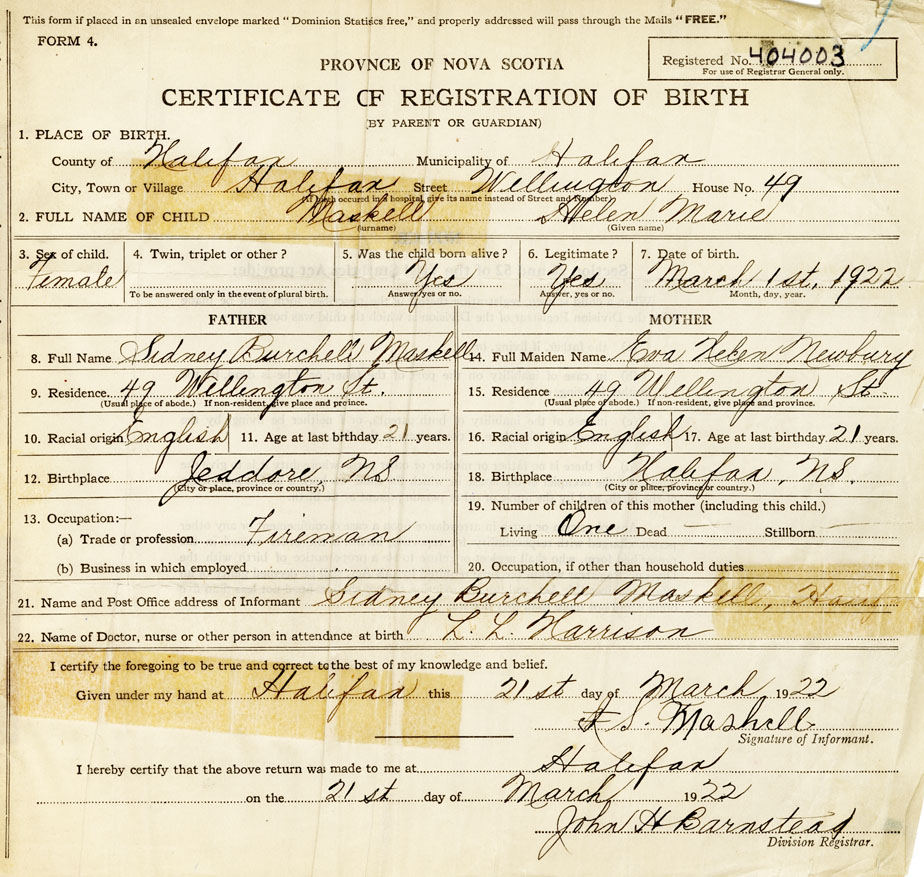 This form if placed in an unsealed envelope marked "Dominion Statistics free," and properly addressed will pass through the Mails "FREE."
FORM 4.
Registered No. 404003
For use of Registrar General only.
PROVNCE OF NOVA SCOTIA
CERTIFICATE OF REGISTRATION OF BIRTH
(BY PARENT OR GUARDIAN)
1. PLACE OF BIRTH.
County of Halifax Municipality of Halifax
City, Town or Village Halifax Street Wellington House No. 49
(If birth occured in a hospital, give its name instead of Street and Number)
2. FULL NAME OF CHILD Maskell Helen Marie
(surname) (Given name)
3. Sex of child. 4. Twin, triplet or other? 5. Was the child born alive? 6. Legitimate? 7. Date of birth.
Female Yes Yes March 1st, 1922
To be answered only in the event of plural birth. Answer yes or no. Answer, yes or no. Month, day, year.
FATHER
8. Full Name Sidney Burchell Maskell
9. Residence. 49 Wellington St.
(Usual place of abode.) If non-resident, give place and province.
10. Racial origin English 11. Age at last birthday 21 years.
12. Birthplace Jeddore, NS
(City or place, province or country.)
13. Occupation:—
(a) Trade or profession Fireman
(b) Business in which employed
MOTHER
14. Full Maiden Name Eva Helen Newbury
15. Residence 49 Wellington St.
(Usual place of abode.) If non-resident, give place and province.
16. Racial origin English 17. Age at last birthday 21 years.
18. Birthplace Halifax, NS.
(City or place, province or country.)
19. Number of children of this mother (including this child.)
Living One Dead — Stillborn —
20. Occupation, if other than household duties
21. Name and Post Office address of Informant Sidney Burchell Maskell,
22. Name of Doctor, nurse or other person in attendance at birth L. L. Harrison
I certify the foregoing to be true and correct to the best of my knowledge and belief.
Given under my hand at Halifax this 21st day of March 1922
S. Maskell
Signature of Informant.
I hereby certify that the above return was made to me at Halifax
on the 21st day of March 1922
John H Barnstead
Division Registrar.